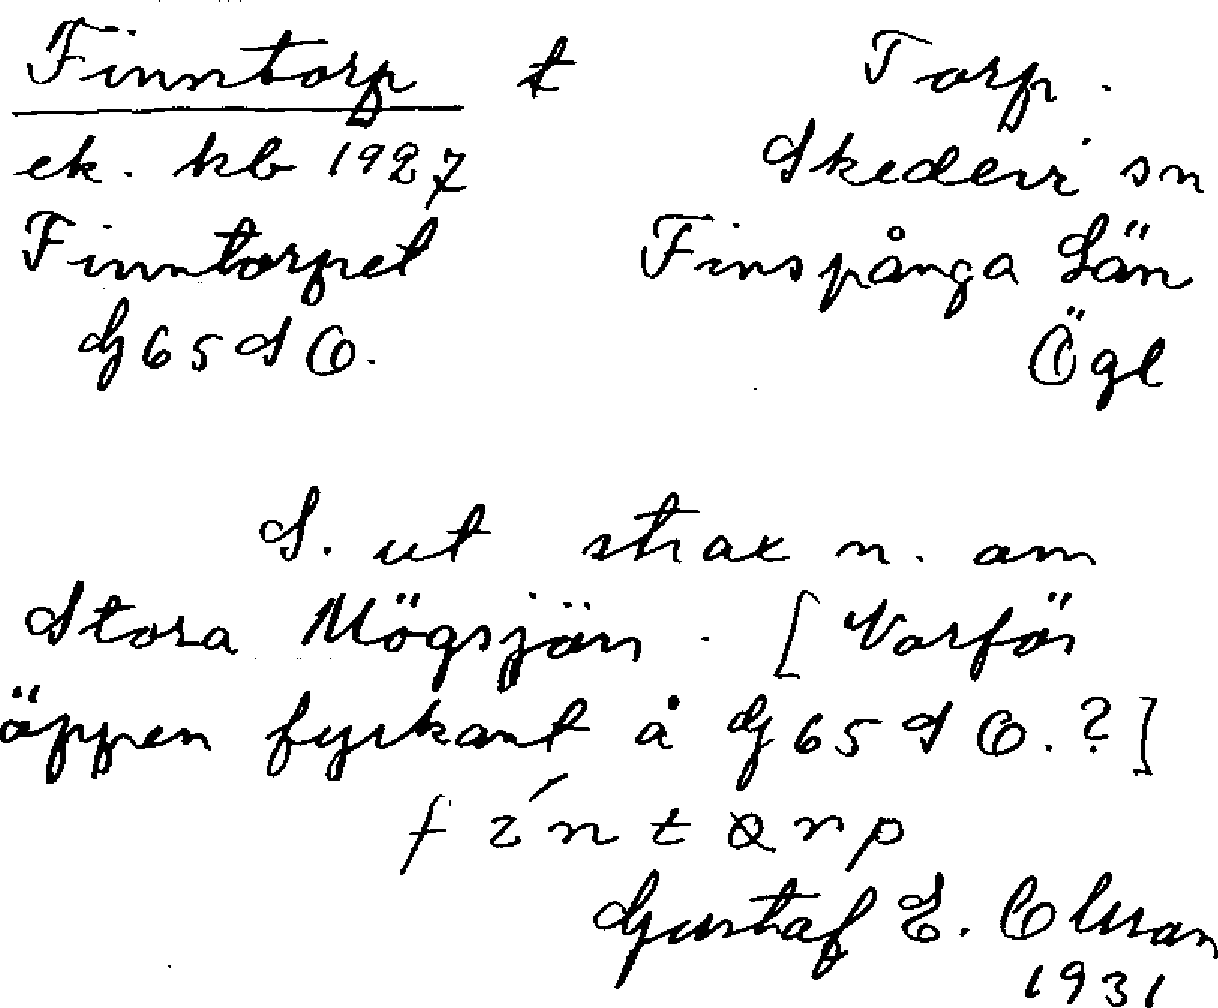 Finntorp t Torp.
ek. kb 1927 Skedevi sn
Finntorpet Finspånga Län
G 65 S O. Ögl
S. ut strax n. om
Stora Mögsjön. [Varför
öppen fyrkant å G 65 S O.?]
fíntɷrp
Gustaf E. Olsson
1931